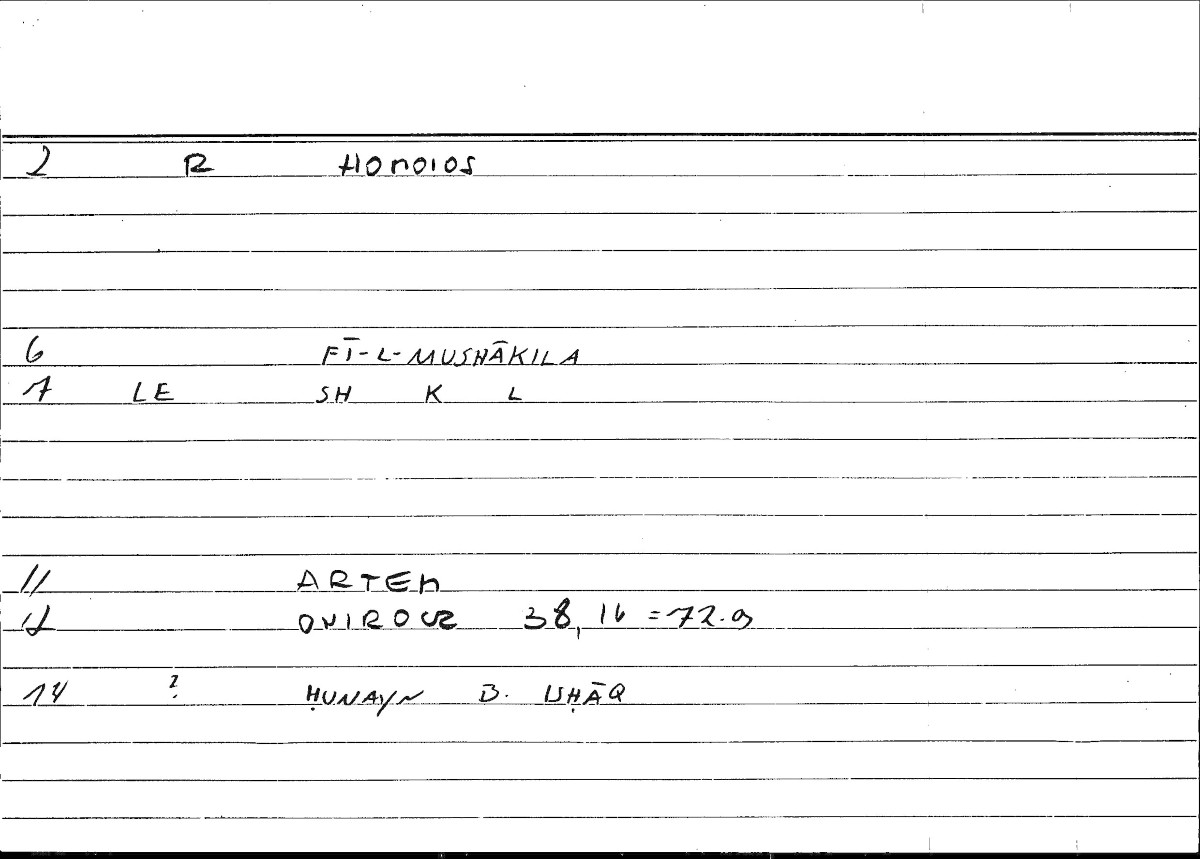 2 R HOMOIOS
6 FĪ-L-MUSHĀKILA
7 LE SH K L
11 ARTEM
12 ONIROCR 38, 16 = 72.9
14 ? ḤUNAYN B. ISḤĀQ